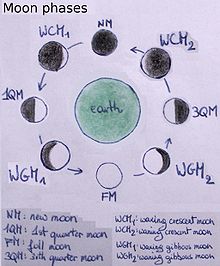 Moon phases
NM
WCM₁
WCM₂
1QM
earth
3QM
WGM₁
WGM₂
FM
NM: new moon
1QM: 1st quarter moon
FM: full moon
3QM: 3rth quarter moon
WCM₁: waxing crescent moon
WCM₂: waning crescent moon
WGM₁: waxing gibbous moon
WGM₂: waning gibbous moon